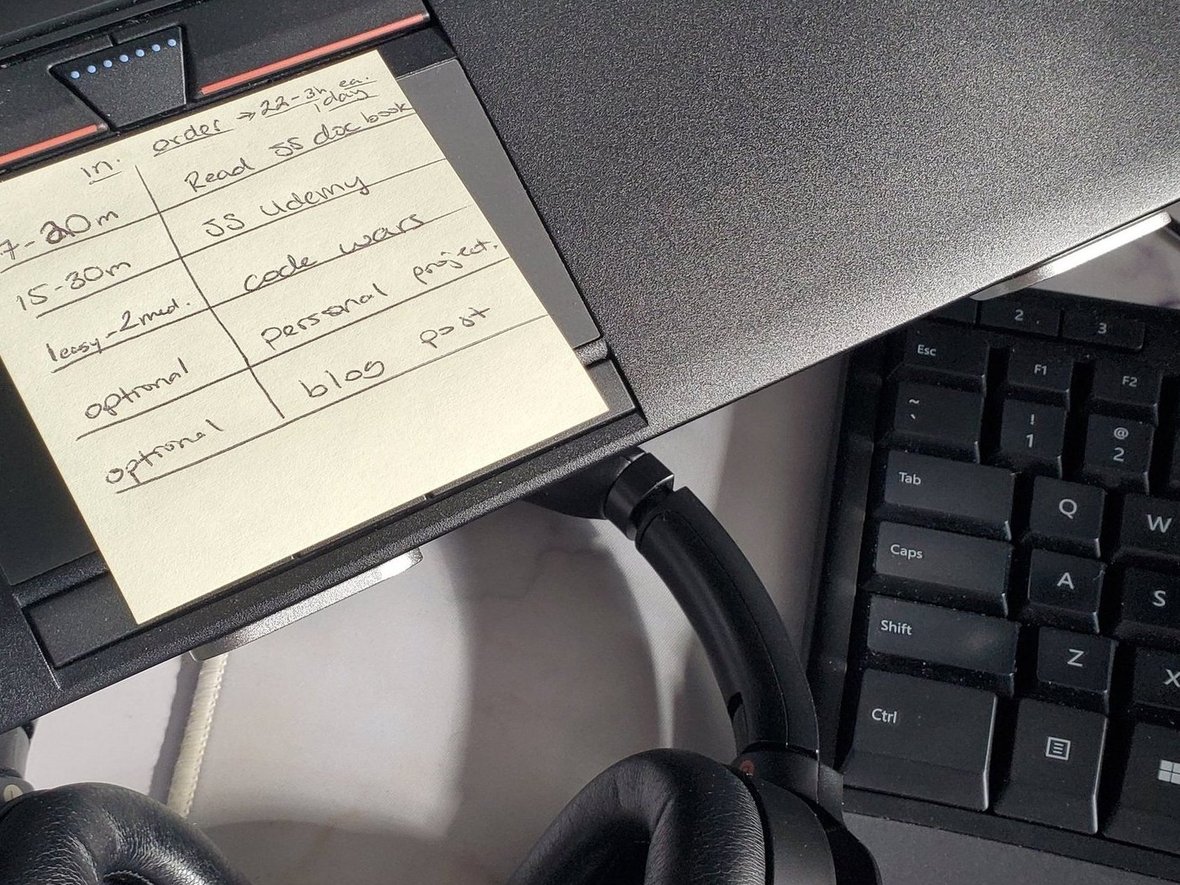 in. order → 22-3h ea.
1 day
7-20m Read JS doc book
15-30m JS Udemy
1easy-2med. code wars
optional personal project.
optional blog post
2 3
Esc F1 F2
~ ` ! 1 @ 2
Tab Q W
Caps A S
Shift Z X
Ctrl